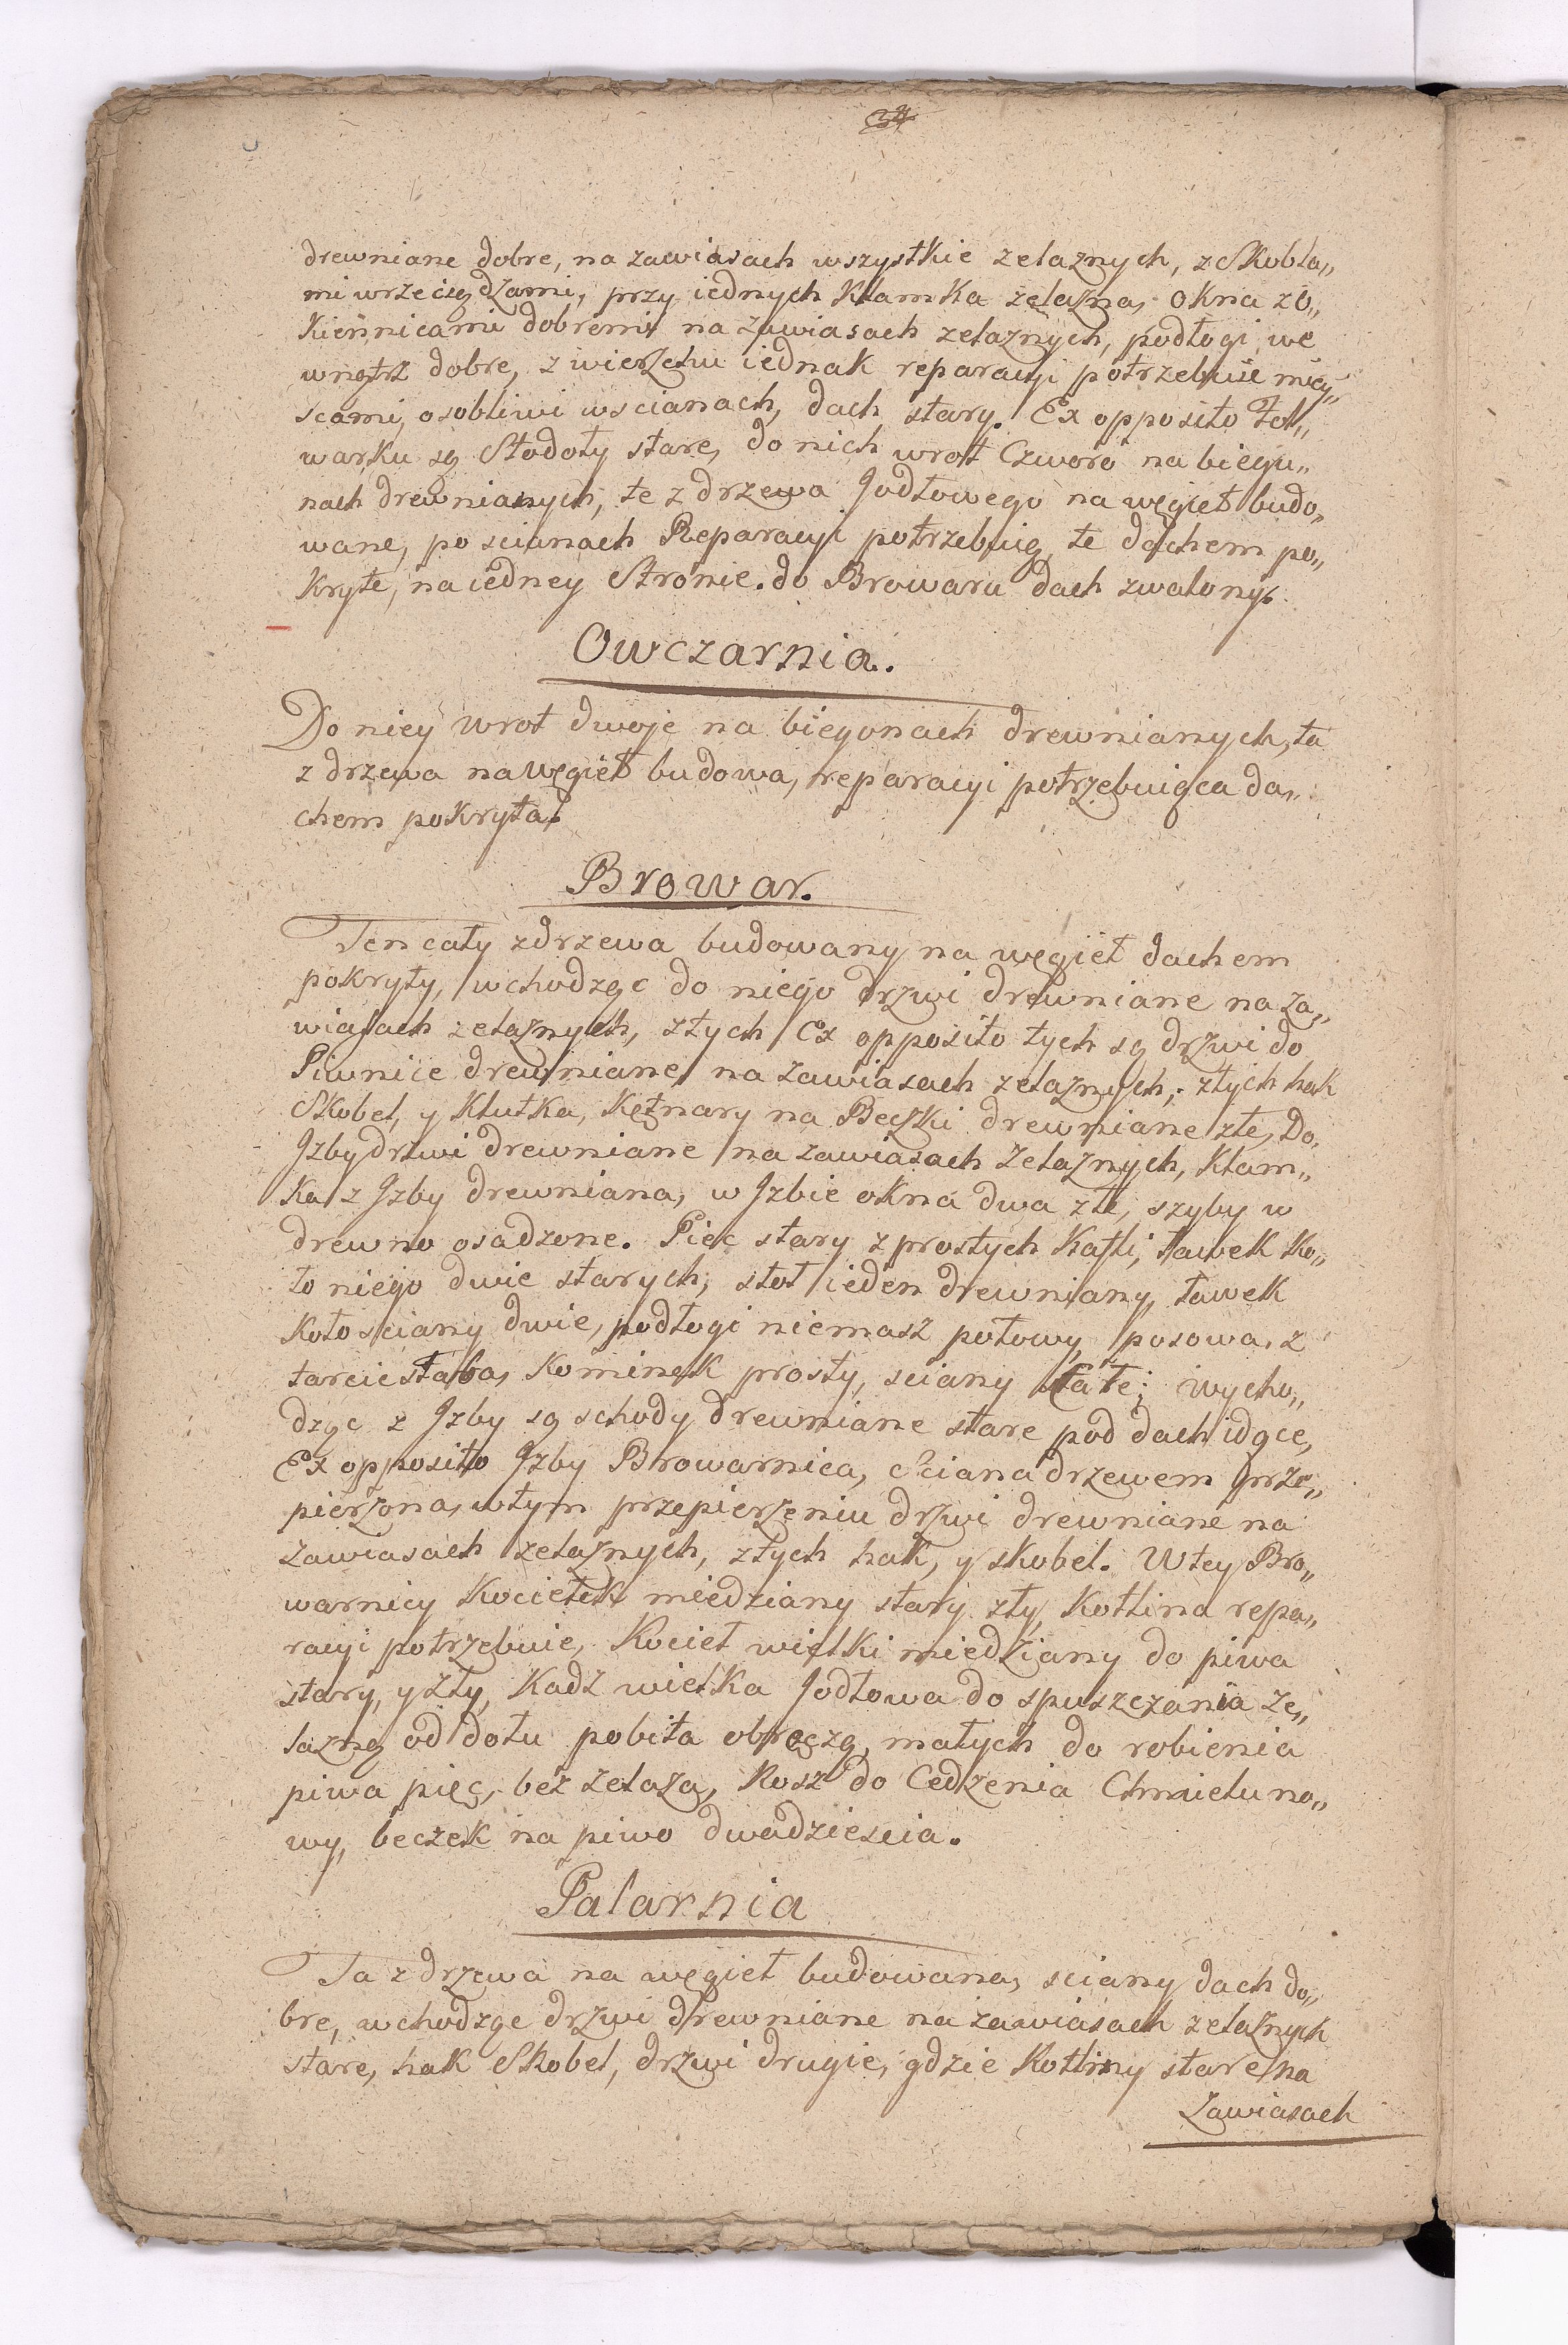 34
drewniane dobre, na zawiasach wszystkie zelaznych, z Skobla„
mi wrzeciądzami, przy iednych Klamka zelazna, okna z o„
kiennicami dobremi na zawiasach zelaznych, podłogi we
wnątrz dobre, z wierzchu iednak reparacyi potrzebuie miey„
scami, osobliwi w scianach, dach stary. Ex opposito Fol„
warku są Stodoły stare, do nich wrot Czworo na biegu„
nach drewnianych, te z drzewa Jodłowego na węgieł budo„
wane, po scianach Reparacyi potrzebuią, te dachem po„
kryte, na iedney Stronie do Browaru dach zwalony.
Owczarnia.
Do niey wrot dwoje na biegonach drewnianych, ta
z drzewa na węgieł budowa, reparacyi potrzebuiąca da„
chem pokryta.
Browar.
Ten cały z drzewa budowany na węgieł dachem
pokryty, wchodząc do niego drzwi drewniane na za„
wiasach zelaznych, złych Ex opposito tych są drzwi do
Piwnice drewniane na zawiasach zelaznych, złych hak
Skobel, y Klutka, Kętnary na Beczki drewniane złe, Do
Jzby drzwi drewniane na zawiasach Zelaznych, Klam„
ka z Jzby drewniana, w Jzbie okna dwa złe, szyby w
drewno osadzone. Piec stary z prostych Kafli, ławek ko„
ło niego dwie starych, stoł ieden drewniany, ławek
koło sciany dwie, podłogi niemasz połowy, posowa z
tarcic słaba, Kominek prosty, sciany stałe; wycho„
dząc z Jzby są schody drewniane stare pod dach idące,
Ex opposito Jzby Browarnica, Sciana drzewem prze„
pierzona, w tym przepierzeniu drzwi drewniane na
zawiasach zelaznych, złych hak, y skobel. W tey Bro„
warnicy Kociełek miedziany stary zły, Kotlina repa„
racyi potrzebuie, Kocieł wielki miedziany do piwa
stary, y zły, Kadz wielka Jodłowa do spuszczania ze„
lazną od dołu pobita obręczą, małych do robienia
piwa pięć, bez zelaza, Kosz do Cedzenia Chmielu no„
wy, beczek na piwo dwadziescia.
Palarnia
Ta z drzewa na węgieł budowana, sciany dach do„
bre, wchodząc drzwi drewniane na zawiasach zelaznych
stare, hak Skobel, drzwi drugie, gdzie Kotliny stare na
Zawiasach